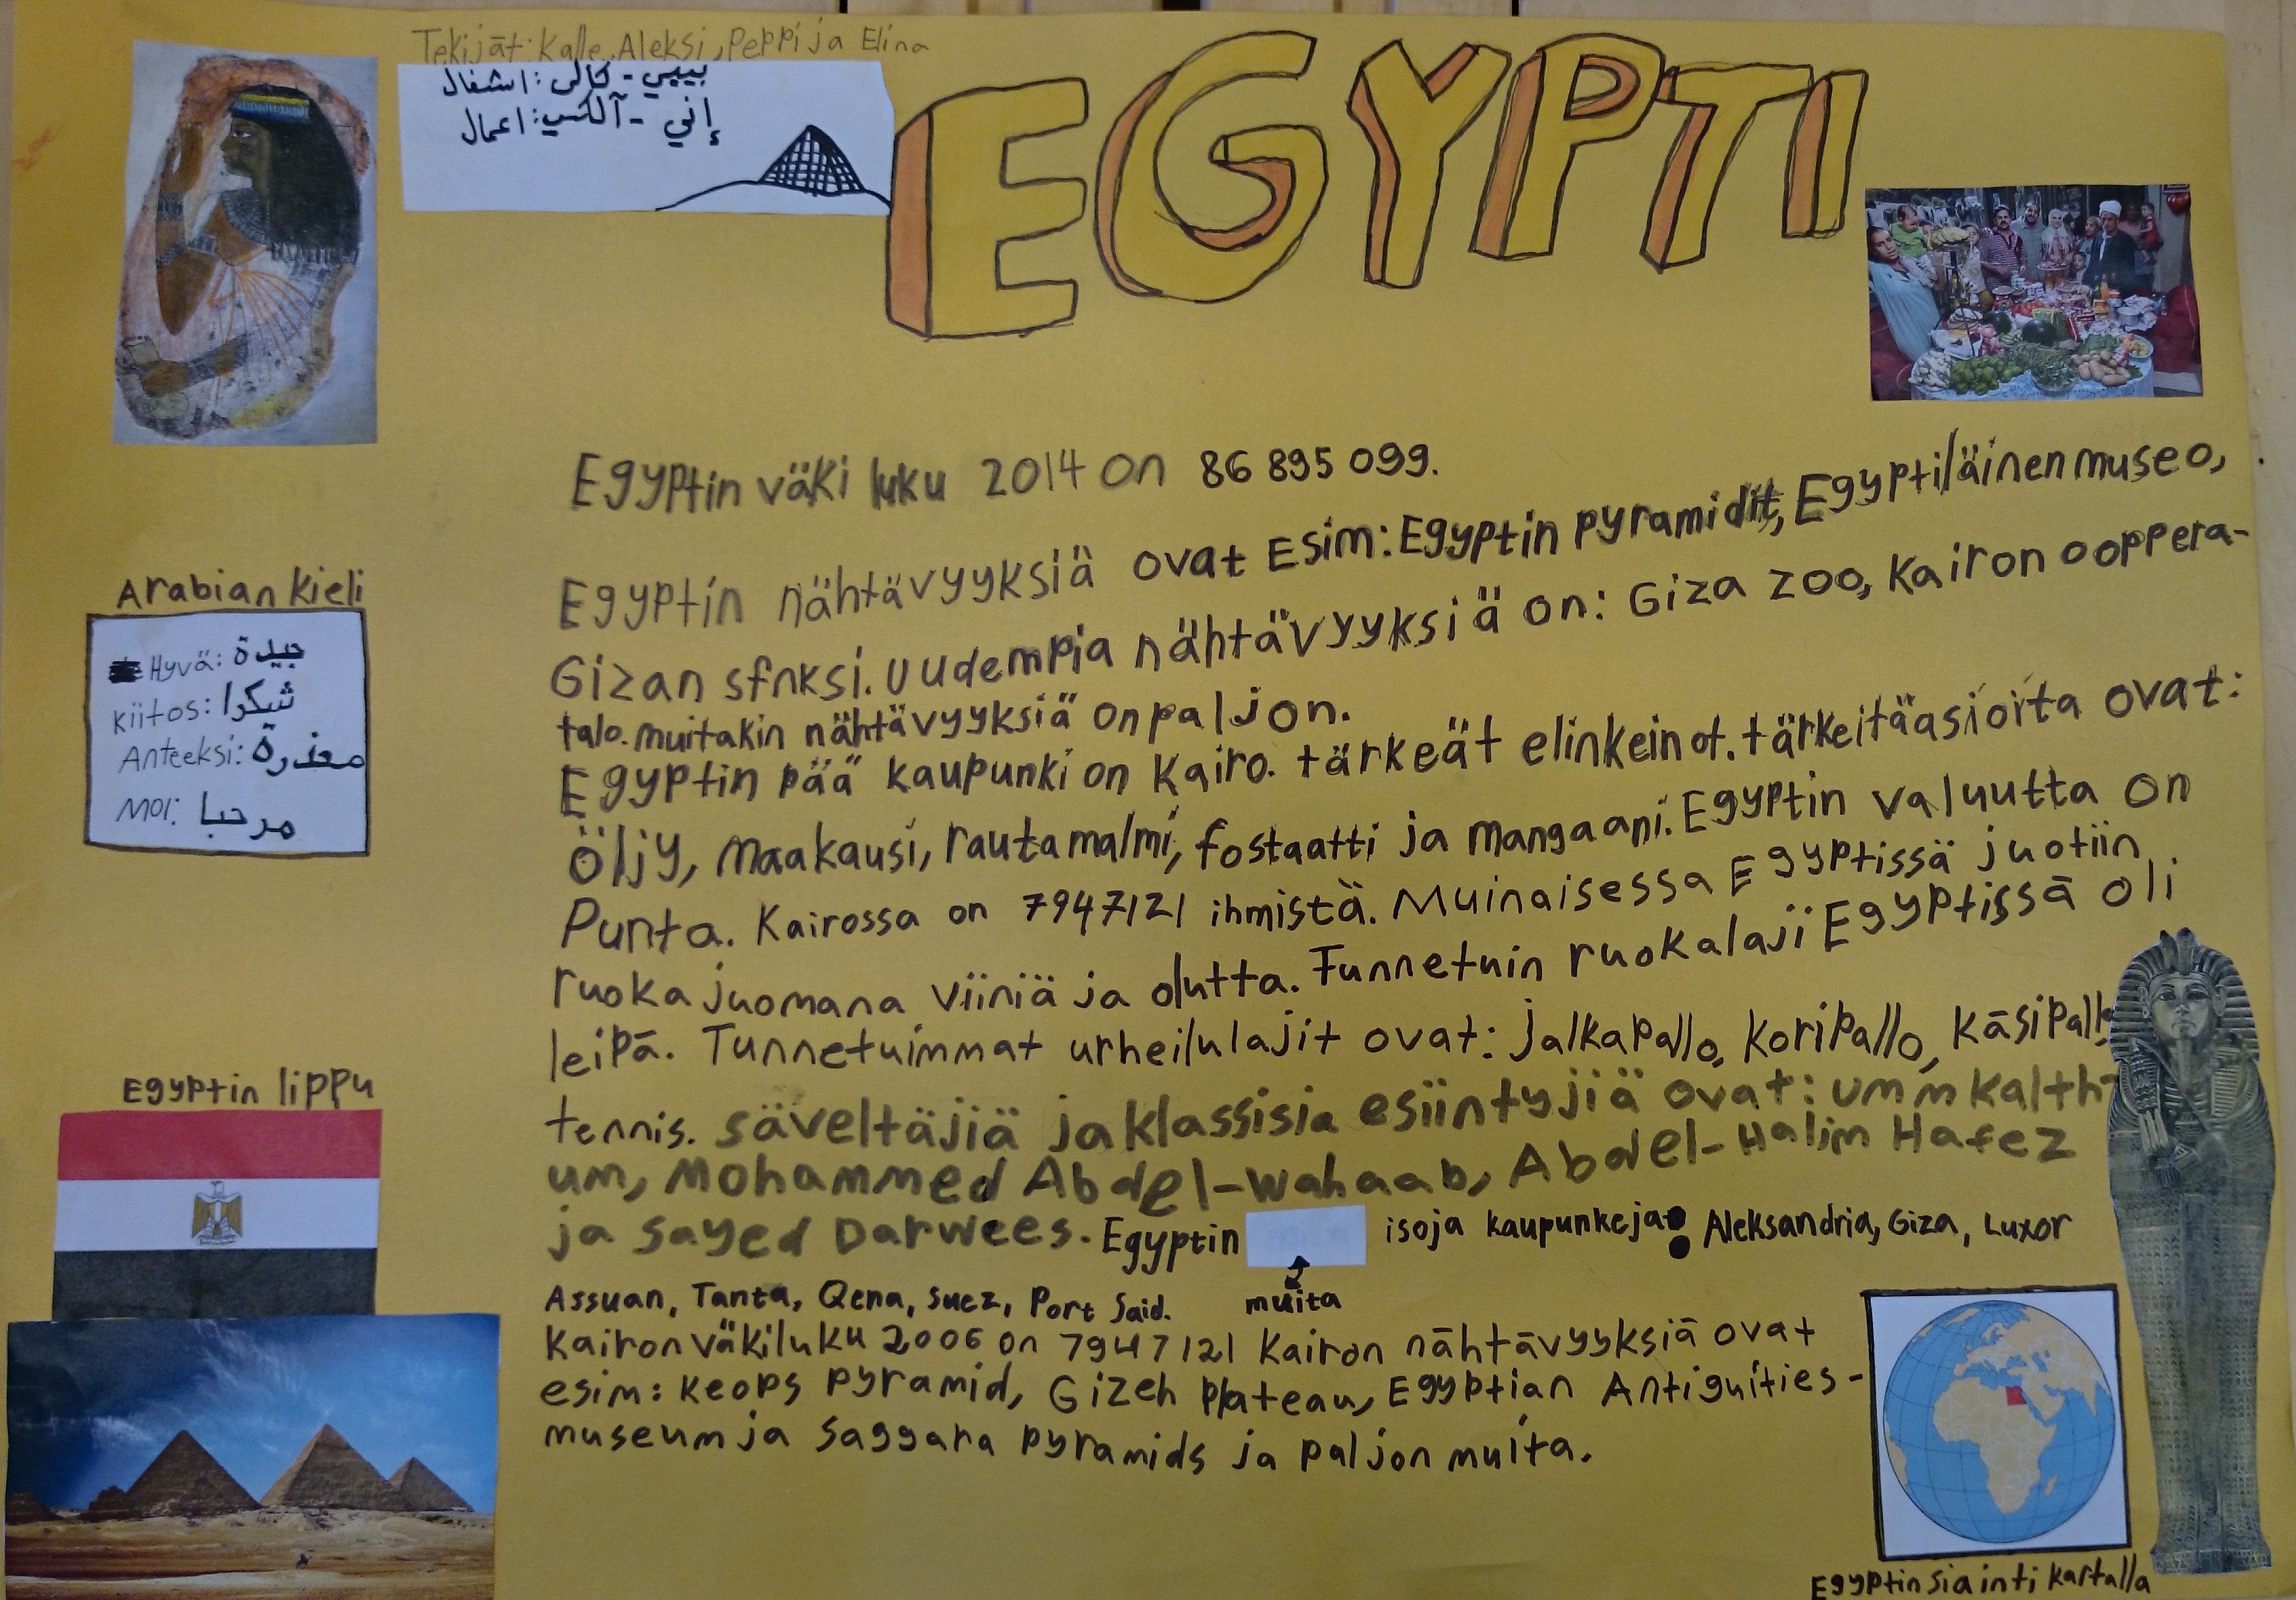 Tekijät: Kalle, Aleksi, Peppi ja Elina
بيبي - كالى: اشغال
إني - آلكسي: اعمال
EGYPTI
Egyptin väki luku 2014 on 86 895 099.
Egyptin nähtävyyksiä ovat Esim: Egyptin pyramidit, Egyptiläinen museo,
Gizan sfnksi. Uudempia nähtävyyksiä on: Giza zoo, Kairon ooppera-
talo. muitakin nähtävyyksiä on paljon.
Egyptin pää kaupunki on Kairo. tärkeät elinkeinot. tärkeitä asioita ovat:
öljy, maakausi, rautamalmi, fostaatti ja mangaani. Egyptin valuutta on
Punta. Kairossa on 7947121 ihmistä. Muinaisessa Egyptissä juotiin
ruoka juomana viiniä ja olutta. Tunnetuin ruokalaji Egyptissä oli
leipä. Tunnetuimmat urheilulajit ovat: jalkapallo, koripallo, käsipallo,
tennis. säveltäjiä ja klassisia esiintyjiä ovat: umm kalth-
um, Mohammed Abdel-wahaab, Abdel-Halim Hafez
ja Sayed Darwees. Egyptin isoja kaupunkeja: Aleksandria, Giza, Luxor
muita
Assuan, Tanta, Qena, Suez, Port Said.
Kairon väkiluku 2006 on 7947121 Kairon nähtävyyksiä ovat
esim: Keops pyramid, Gizeh plateau, Egyptian Antiguities-
museum ja saggara pyramids ja paljon muita.
Arabian Kieli
Hyvä: جيدة
kiitos: شكرا
Anteeksi: معذرة
Moi: مرحبا
Egyptin lippu
Egyptin siainti kartalla